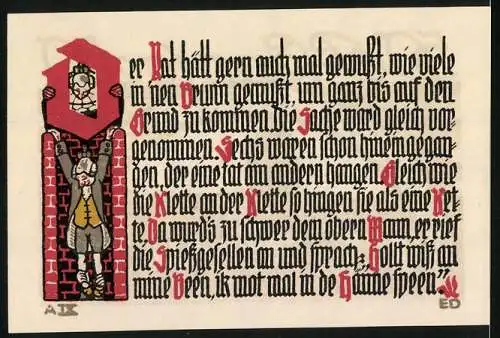 Der Rat hätt gern auch mal gewußt, wie viele
in nen Brunn gemußt, um ganz bis auf den
Grund zu kommen. die Sache ward gleich vor-
genommen. Sechs waren schon hineingegan-
gen, der eine tat am andern hangen. Gleich wie
die Klette an der Klette so hingen sie als eine Ket-
te. Da wurd's zu schwer dem obern Mann, er rief
die Spießgesellen an und sprach: „Hollt wiß an
mine Been, ik mot mal in de Hänne speen.“
A IX
ED